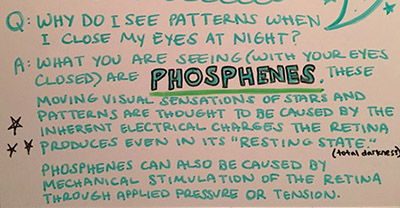 Q: WHY DO I SEE PATTERNS WHEN
I CLOSE MY EYES AT NIGHT?
A: WHAT YOU ARE SEEING (WITH YOUR EYES
CLOSED) ARE PHOSPHENES. THESE
MOVING VISUAL SENSATIONS OF STARS AND
PATTERNS ARE THOUGHT TO BE CAUSED BY THE
INHERENT ELECTRICAL CHARGES THE RETINA
PRODUCES EVEN IN ITS "RESTING STATE."
(total darkness)
PHOSPHENES CAN ALSO BE CAUSED BY
MECHANICAL STIMULATION OF THE RETINA
THROUGH APPLIED PRESSURE OR TENSION.